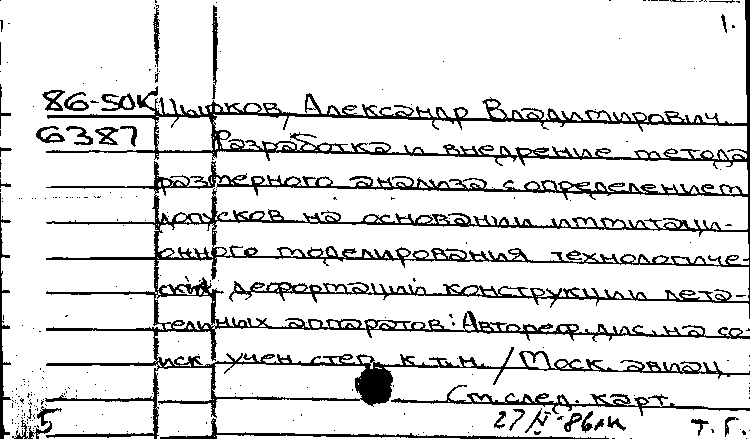 1.
86-50К Цырков, Александр Владимирович.
6387 Разработка и внедрение метода
размерного анализа с определением
допусков на основании иммитаци-
онного моделирования технологиче-
ских деформаций конструкции лета-
тельных аппаратов: Автореф. дис. на со-
иск. учен. степ. к.т.н. / Моск. авиац.
См. след. карт.
5 27/V-86 Т.Г.